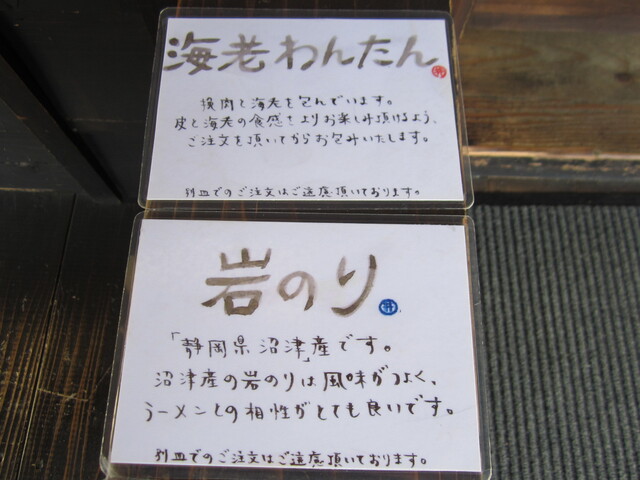 海老わんたん
挽肉と海老を包んでいます。
皮と海老の食感をよりお楽しみ頂けるよう、
ご注文を頂いてからお包みいたします。
別皿でのご注文はご遠慮頂いております。
岩のり
「静岡県沼津」産です。
沼津産の岩のりは風味がつよく、
ラーメンとの相性がとても良いです。
別皿でのご注文はご遠慮頂いております。